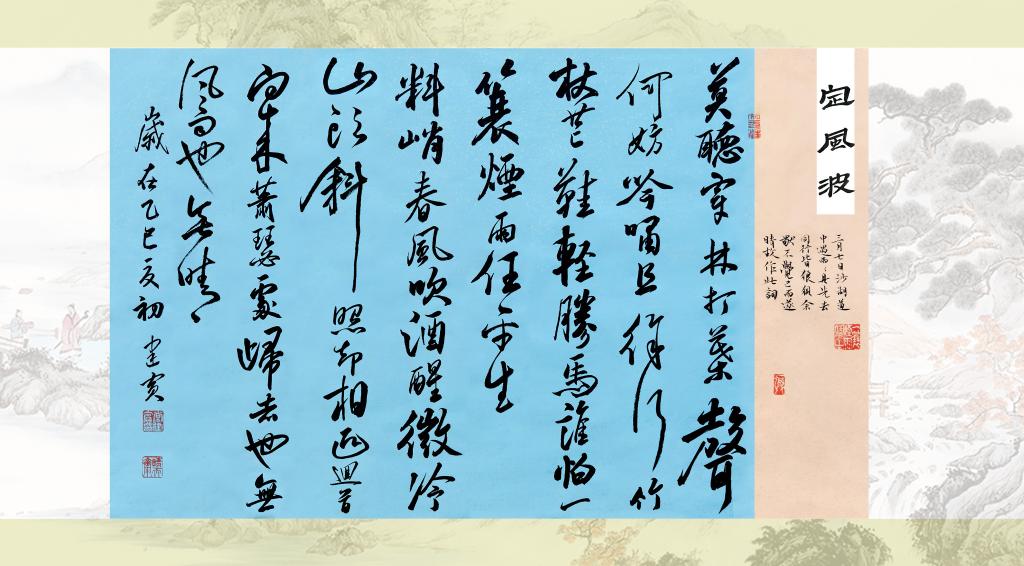 定風波
三月七日沙湖道
中遇雨雨具先去
同行皆狼狽余
獨不覺已而遂
晴故作此詞
莫聽穿林打葉聲
何妨吟嘯且徐行竹
杖芒鞋輕勝馬誰怕一
蓑煙雨任平生
料峭春風吹酒醒微冷
山頭斜照却相迎迴首
向來蕭瑟處歸去也無
風雨也無晴
歲在乙巳夏初